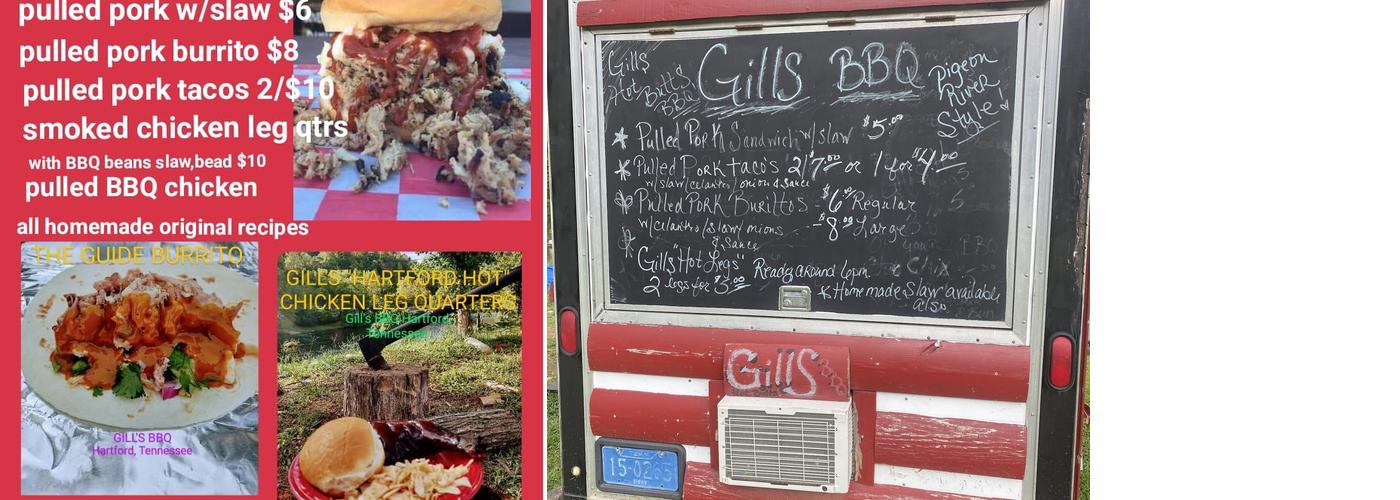 pulled pork w/slaw $6
pulled pork burrito $8
pulled pork tacos 2/$10
smoked chicken leg qtrs
with BBQ beans slaw,bead $10
pulled BBQ chicken
all homemade original recipes
THE GUIDE BURRITO
GILL'S BBQ
Hartford, Tennessee
GILLS "HARTFORD HOT"
CHICKEN LEG QUARTERS
Gill's BBQ Hartford,
Tennessee
Gills
Hot Butts
BBQ
Gills BBQ
Pigeon
River
Style!
* Pulled Pork Sandwich w/slaw $5.00
* Pulled Pork tacos 2/$7.00 or 1 for $4.00
w/slaw/cilantro/onion & sauce
Pulled Pork Burittos $6.00 Regular
w/cilantro/slaw/onions - $8.00 Large
& sauce
* Gills "Hot Legs" Ready around 6pm
2 legs for $3.00
* Homemade Slaw available
also
Gills
15-0265